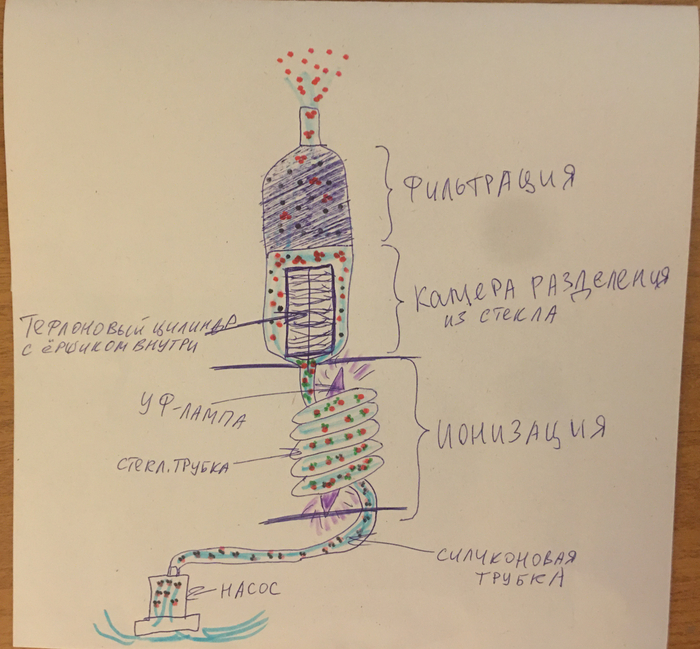 ФИЛЬТРАЦИЯ
КАМЕРА РАЗДЕЛЕНИЯ
ИЗ СТЕКЛА
ТЕФЛОНОВЫЙ ЦИЛИНДР
С ЁРШИКОМ ВНУТРИ
УФ-ЛАМПА
ИОНИЗАЦИЯ
СТЕКЛ. ТРУБКА
СИЛИКОНОВАЯ
ТРУБКА
НАСОС